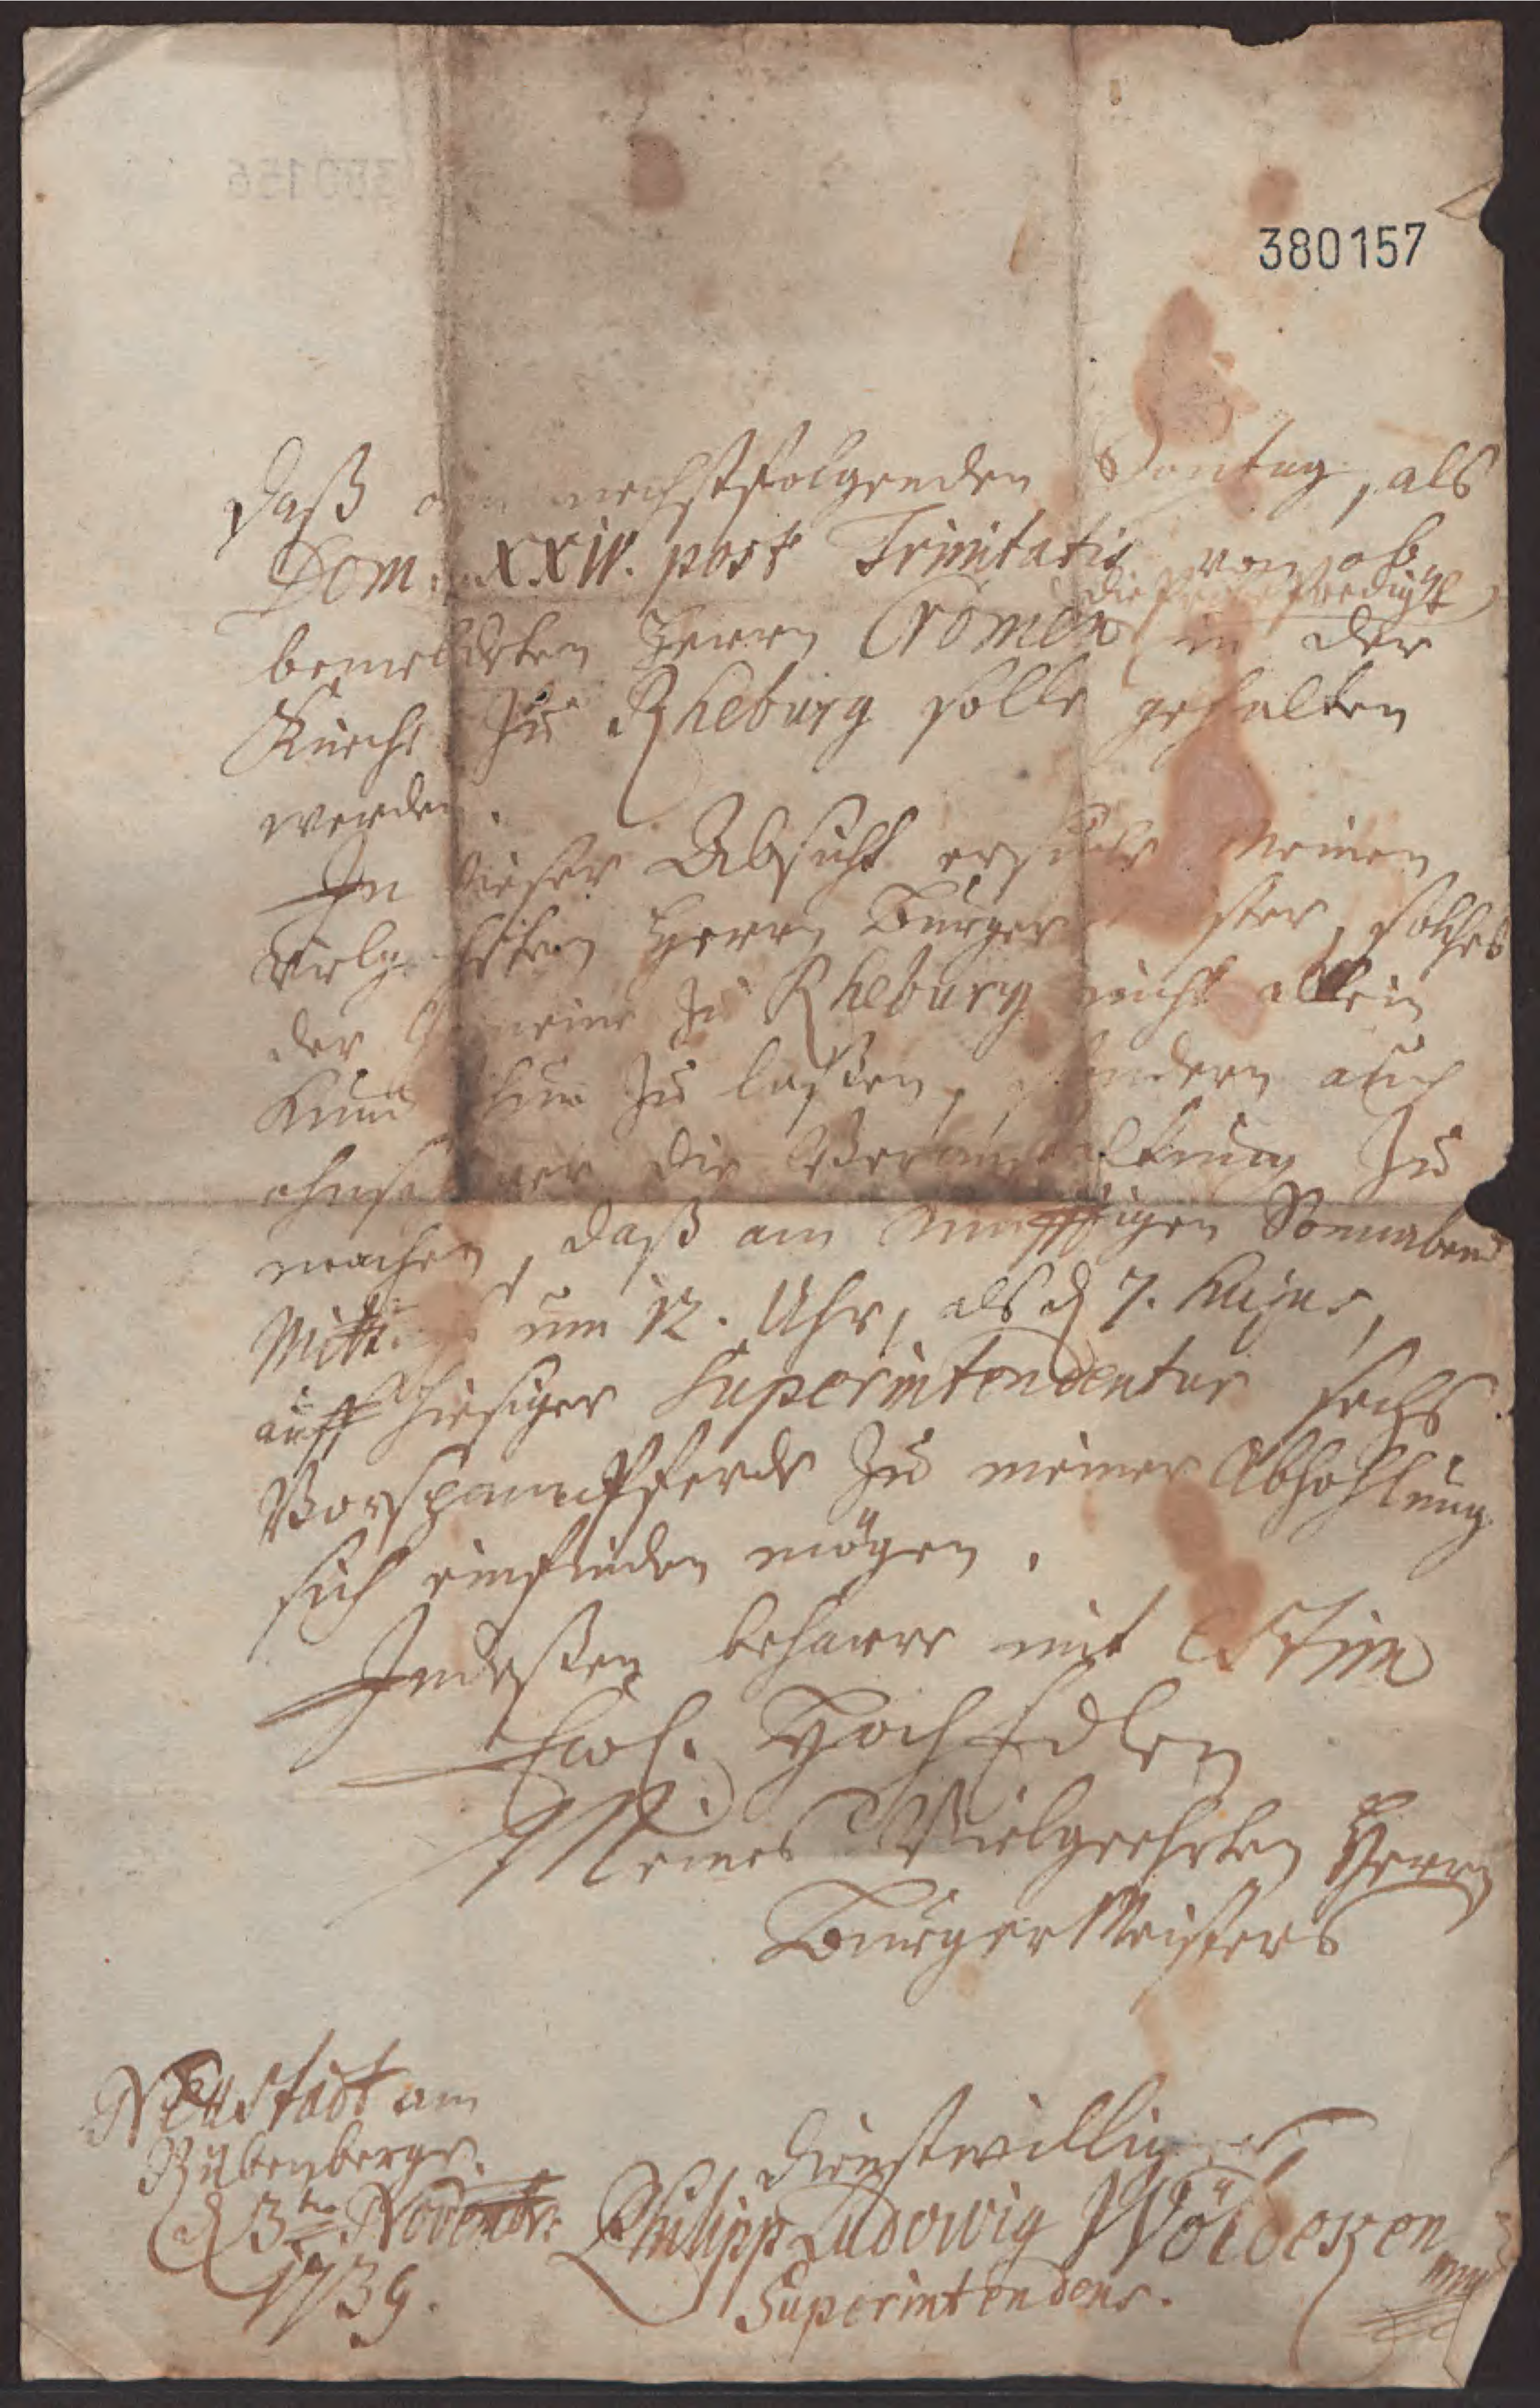 380157
Daß am nechstfolgenden Sontag, als
Dom. XXIV. post Trinitatis von ob
die Predigt
bemeldeten Herrn Cromen in der
Kirche zu Rheburg solle gehalten
werden.
In dieser Absicht ersuche meinen
vielgeehrten Herrn Bürgermeister, solches
der Gemeine zu Rheburg nicht allein
kund thun zu laßen, sondern auch
die Veranstaltung zu
machen, daß am künfftigen Sonnabend
Mittags um 12. Uhr, als d 7. hujus,
auff hiesiger Superintendentur sechs
Vorspannpferde zu meiner Abhohlung
sich einfinden mögen.
Indeßen beharre mit Estim
Ewl. HochEdlen
Meines Vielgeehrten Herrn
BürgerMeisters
Neustadt am
Rübenberge.
d 3ten Novembr:
1739.
dienstwilliger
Philipp Ludowig
Superintendens.